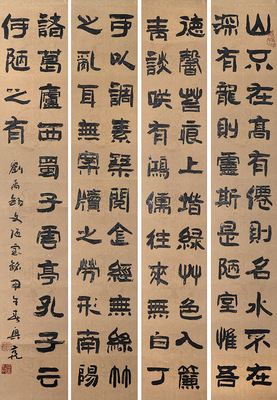 山不在高有僊則名水不在
深有龍則靈斯是陋室惟吾
德馨苔痕上堦綠艸色入簾
青談咲有鴻儒往來無白丁
可以調素琴閱金經無絲竹
之亂耳無案牘之勞形南陽
諸葛廬西蜀子雲亭孔子云
何陋之有
劉禹錫文陋室銘甲午春